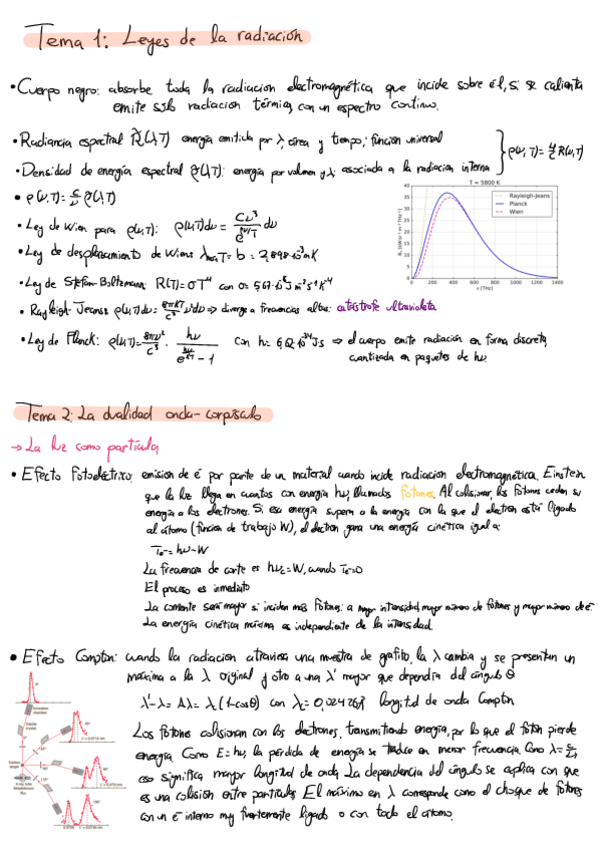 Tema 1: Leyes de la radiación
• Cuerpo negro: absorbe toda la radiacion electromagnética que incide sobre él, si se calienta
emite solo radiacion térmica, con un espectro continuo.
• Radiancia espectral R̃(λ,T) energía emitida por λ, área y tiempo; funcion universal
• Densidad de energía espectral ρ̃(λ,T): energía por volumen y λ; asociada a la radiacion interna
ρ(ν,T)=4/c R(ν,T)
• ρ(ν,T)= c/ν² ρ̃(λ,T)
T = 5800 K
Rayleigh-Jeans
Planck
Wien
40
35
30
25
20
15
10
5
0
0 200 400 600 800 1000 1200 1400
ν [THz]
• Ley de Wien para ρ(ν,T): ρ(ν,T)dν = Cν³/e^(βν/T) dν
• Ley de desplazamiento de Wien: λmax T = b = 2,898·10⁻³ mK
• Ley de Stefan-Boltzmann: R(T)=σT⁴ con σ= 5,67·10⁻⁸ J m⁻² s⁻¹ K⁻⁴
• Rayleigh-Jeans: ρ(ν,T)dν = 8πkT/c³ ν²dν ⇒ diverge a frecuencias altas: catástrofe ultravioleta
• Ley de Planck: ρ(ν,T)= 8πν²/c³ · hν/(e^(hν/kT) − 1) con h= 6,62·10⁻³⁴ Js ⇒ el cuerpo emite radiación en forma discreta,
cuantizada en paquetes de hν.
Tema 2: La dualidad onda-corpúsculo
→ La luz como partícula
• Efecto Fotoeléctrico: emision de e⁻ por parte de un material cuando incide radiacion electromagnética. Einstein
que la luz llega en cuantos con energía hν, llamados fotones. Al colisionar, los fotones ceden su
energía a los electrones. Si esa energía supera a la energía con la que el electron está ligado
al átomo (funcion de trabajo W), el electron gana una energía cinética igual a:
Te⁻= hν-W
La frecuencia de corte es hνc=W, cuando Te⁻=0
El proceso es inmediato
La corriente será mayor si inciden más fotones: a mayor intensidad, mayor número de fotones y mayor número de e⁻.
La energía cinética máxima es independiente de la intensidad.
• Efecto Compton: cuando la radiacion atraviesa una muestra de grafito, la λ cambia y se presentan un
máximo a la λ original y otro a una λ' mayor que dependía del ángulo θ
λ'-λ= Δλ= λc(1-cosθ) con λc= 0,02426Å longitud de onda Compton
Los fotones colisionan con los electrones, transmitiendo energía, por lo que el fotón pierde
energía. Como E=hν, la pérdida de energía se traduce en menor frecuencia. Como λ= c/ν,
eso significa mayor longitud de onda. La dependencia del ángulo se explica con que
es una colisión entre partículas. El máximo en λ corresponde como el choque de fotones
con un e⁻ interno muy fuertemente ligado o con todo el átomo.